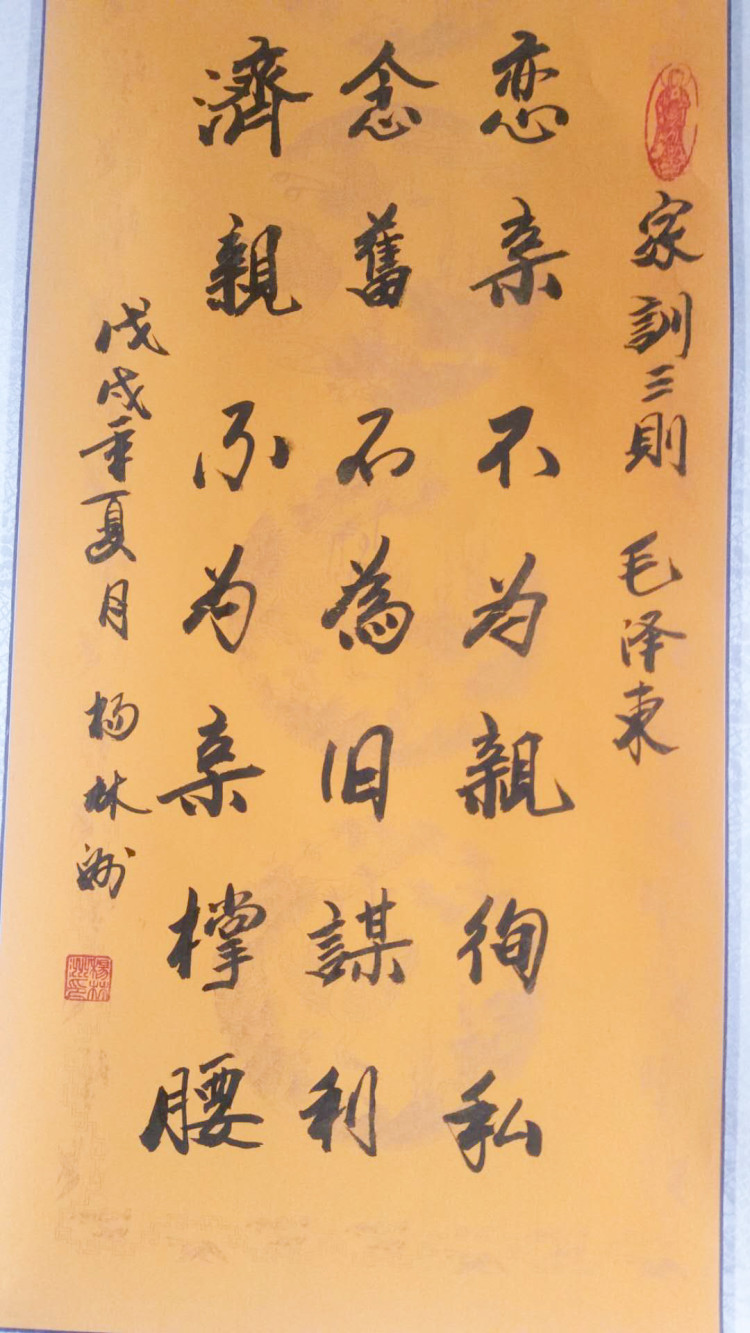 家訓三則 毛泽東
恋亲不为親徇私
念舊不為旧謀利
濟親不为亲撑腰
戊戌年夏月 杨林洲
楊林洲印